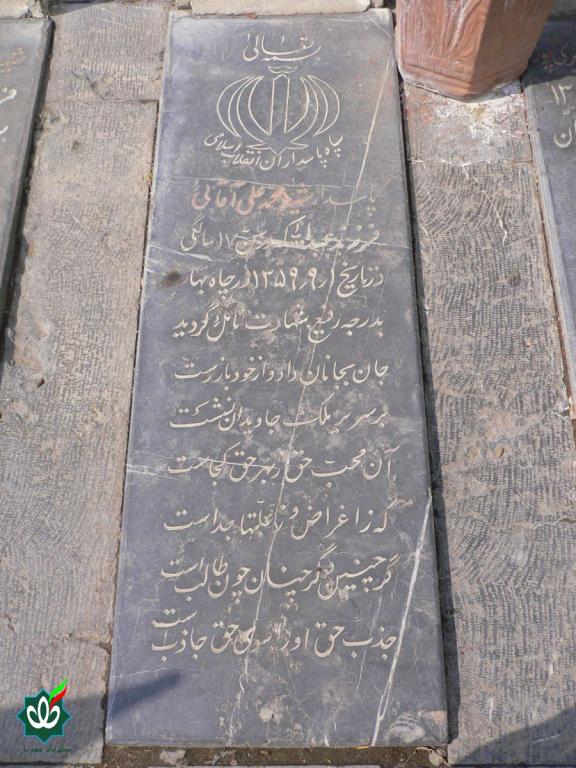 بسمه تعالی
سپاه پاسداران انقلاب اسلامی
پاسدار شهید محمد علی آقائی
فرزند در سن ۱۷ سالگی
در تاریخ ۱ر۹ر۱۳۵۹ در چاه بهار
بدرجه رفیع شهادت نائل گردید
جان بجانان داد و از خود باز رست
بر سریر ملک جاویدان نشست
آن محب حق ز بهر حق کجاست
که ز اغراض و ز علتها جداست
گر چنین گر چنان چون طالب است
جذب حق او را سوی حق جاذب است